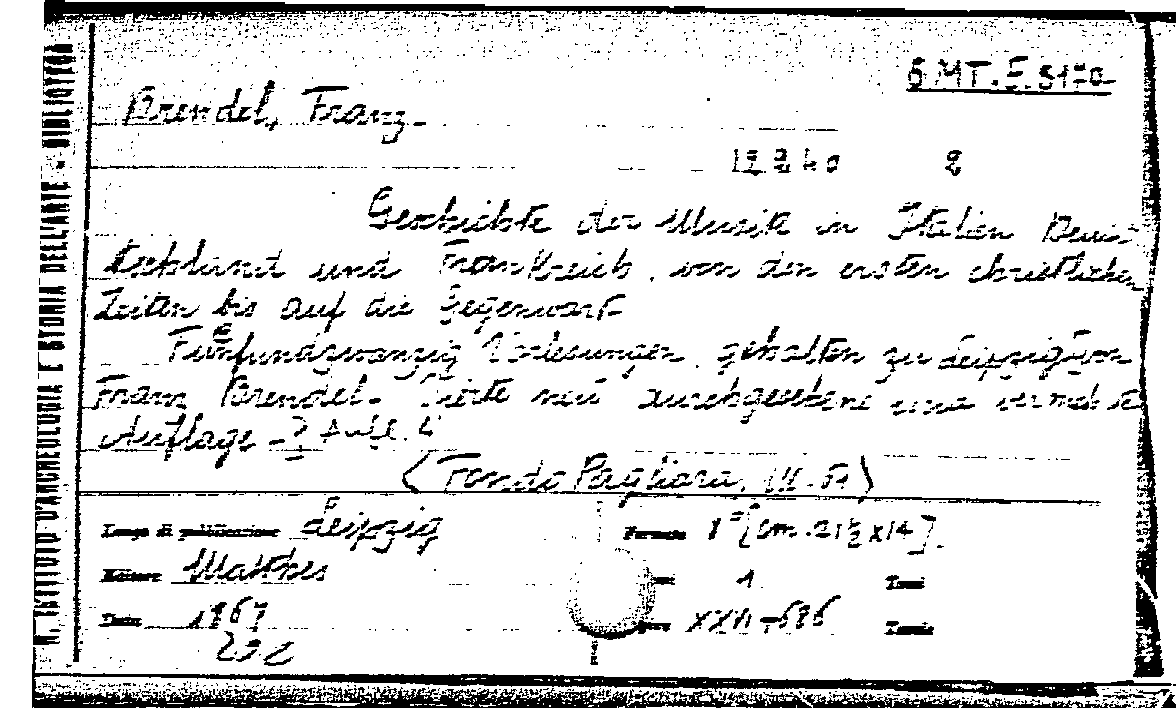 R. ISTITUTO D'ARCHEOLOGIA E STORIA DELL'ARTE - BIBLIOTECA
6 MT. E. 5170
Brendel, Franz.
Geschichte der Musik in Italien Deut
schland und Frankreich, von den ersten christlichen
Zeiten bis auf die Gegenwart
Fünfundzwanzig Vorlesungen, gehalten zu Leipzig von
Franz Brendel. Vierte neu durchgesehene und vermehrte
Auflage - Aufl. 4
(Fondo Pagliara, III. A)
Luogo di pubblicazione Leipzig Formato 8° [cm. 21½ x 14].
Editore Matthes 1 Tomi
Data 1867 XXII-686 Tavole